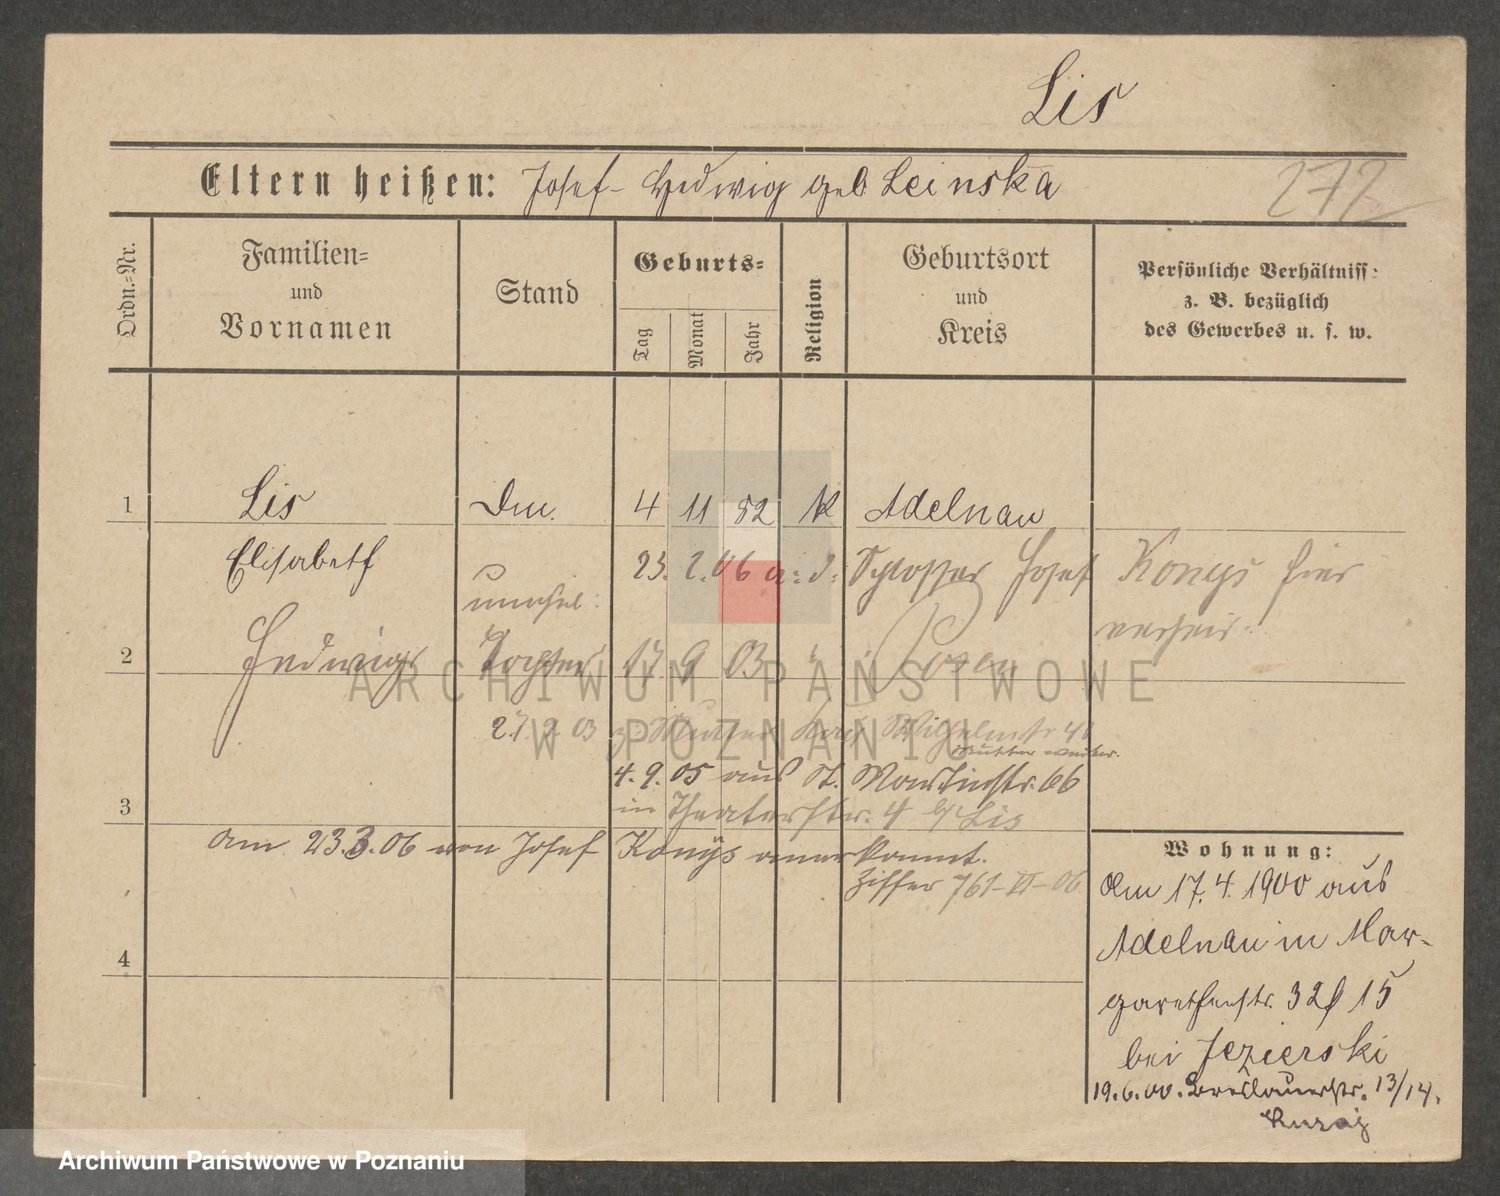 Lis
Eltern heißen: Josef - Hedwig geb Leinska
272
Ordn.-Nr.
Familien-
und
Vornamen
Stand
Geburts-
Tag
Monat
Jahr
Religion
Geburtsort
und
Kreis
Persönliche Verhältniss:
z. B. bezüglich
des Gewerbes u. s. w.
1 Lis 4 11 82 K Adelnau
Elisabeth 23. 2. 06 a: d: Schlosser Josef Konys hier
unehel: verheir:
2 Hedwig Tochter 17. 9 03 " Posen
27 9 03 z. Mutter nach Wilhelmstr 4
4. 9. 05 aus St. Martinstr. 66
3 in Theaterstr. 4 b/ Lis
am 23.3.06 von Josef Konys anerkannt.
Ziffer 761-VI-06
4
Wohnung:
Am 17. 4. 1900 aus
Adelnau in Mar-
garethenstr. 32 15
bei Jezierski
19.6.00. Breslauerstr. 13/14.
ARCHIWUM PAŃSTWOWE
W POZNANIU
Archiwum Państwowe w Poznaniu